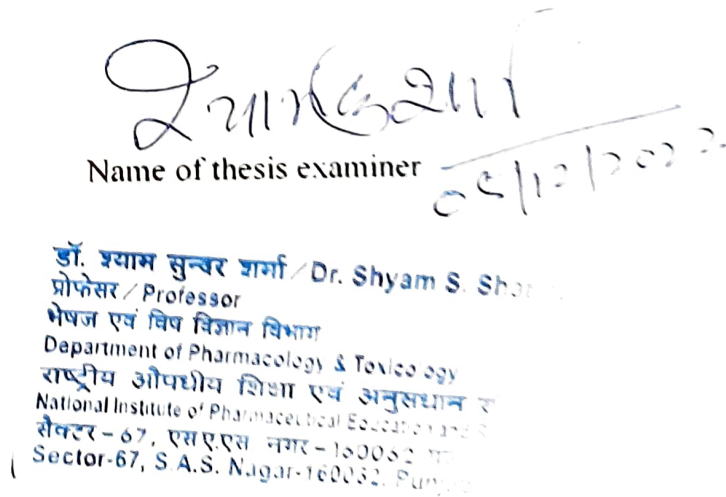 Name of thesis examiner
डॉ. श्याम सुन्दर शर्मा / Dr. Shyam S.
प्रोफेसर / Professor
भेषज एवं विष विज्ञान विभाग
Department of Pharmacology & Toxicology
राष्ट्रीय औषधीय शिक्षा एवं अनुसंधान
National Institute of Pharmaceutical Education and
सैक्टर-67, एस.ए.एस नगर-160062
Sector-67, S.A.S. Nagar-160062.